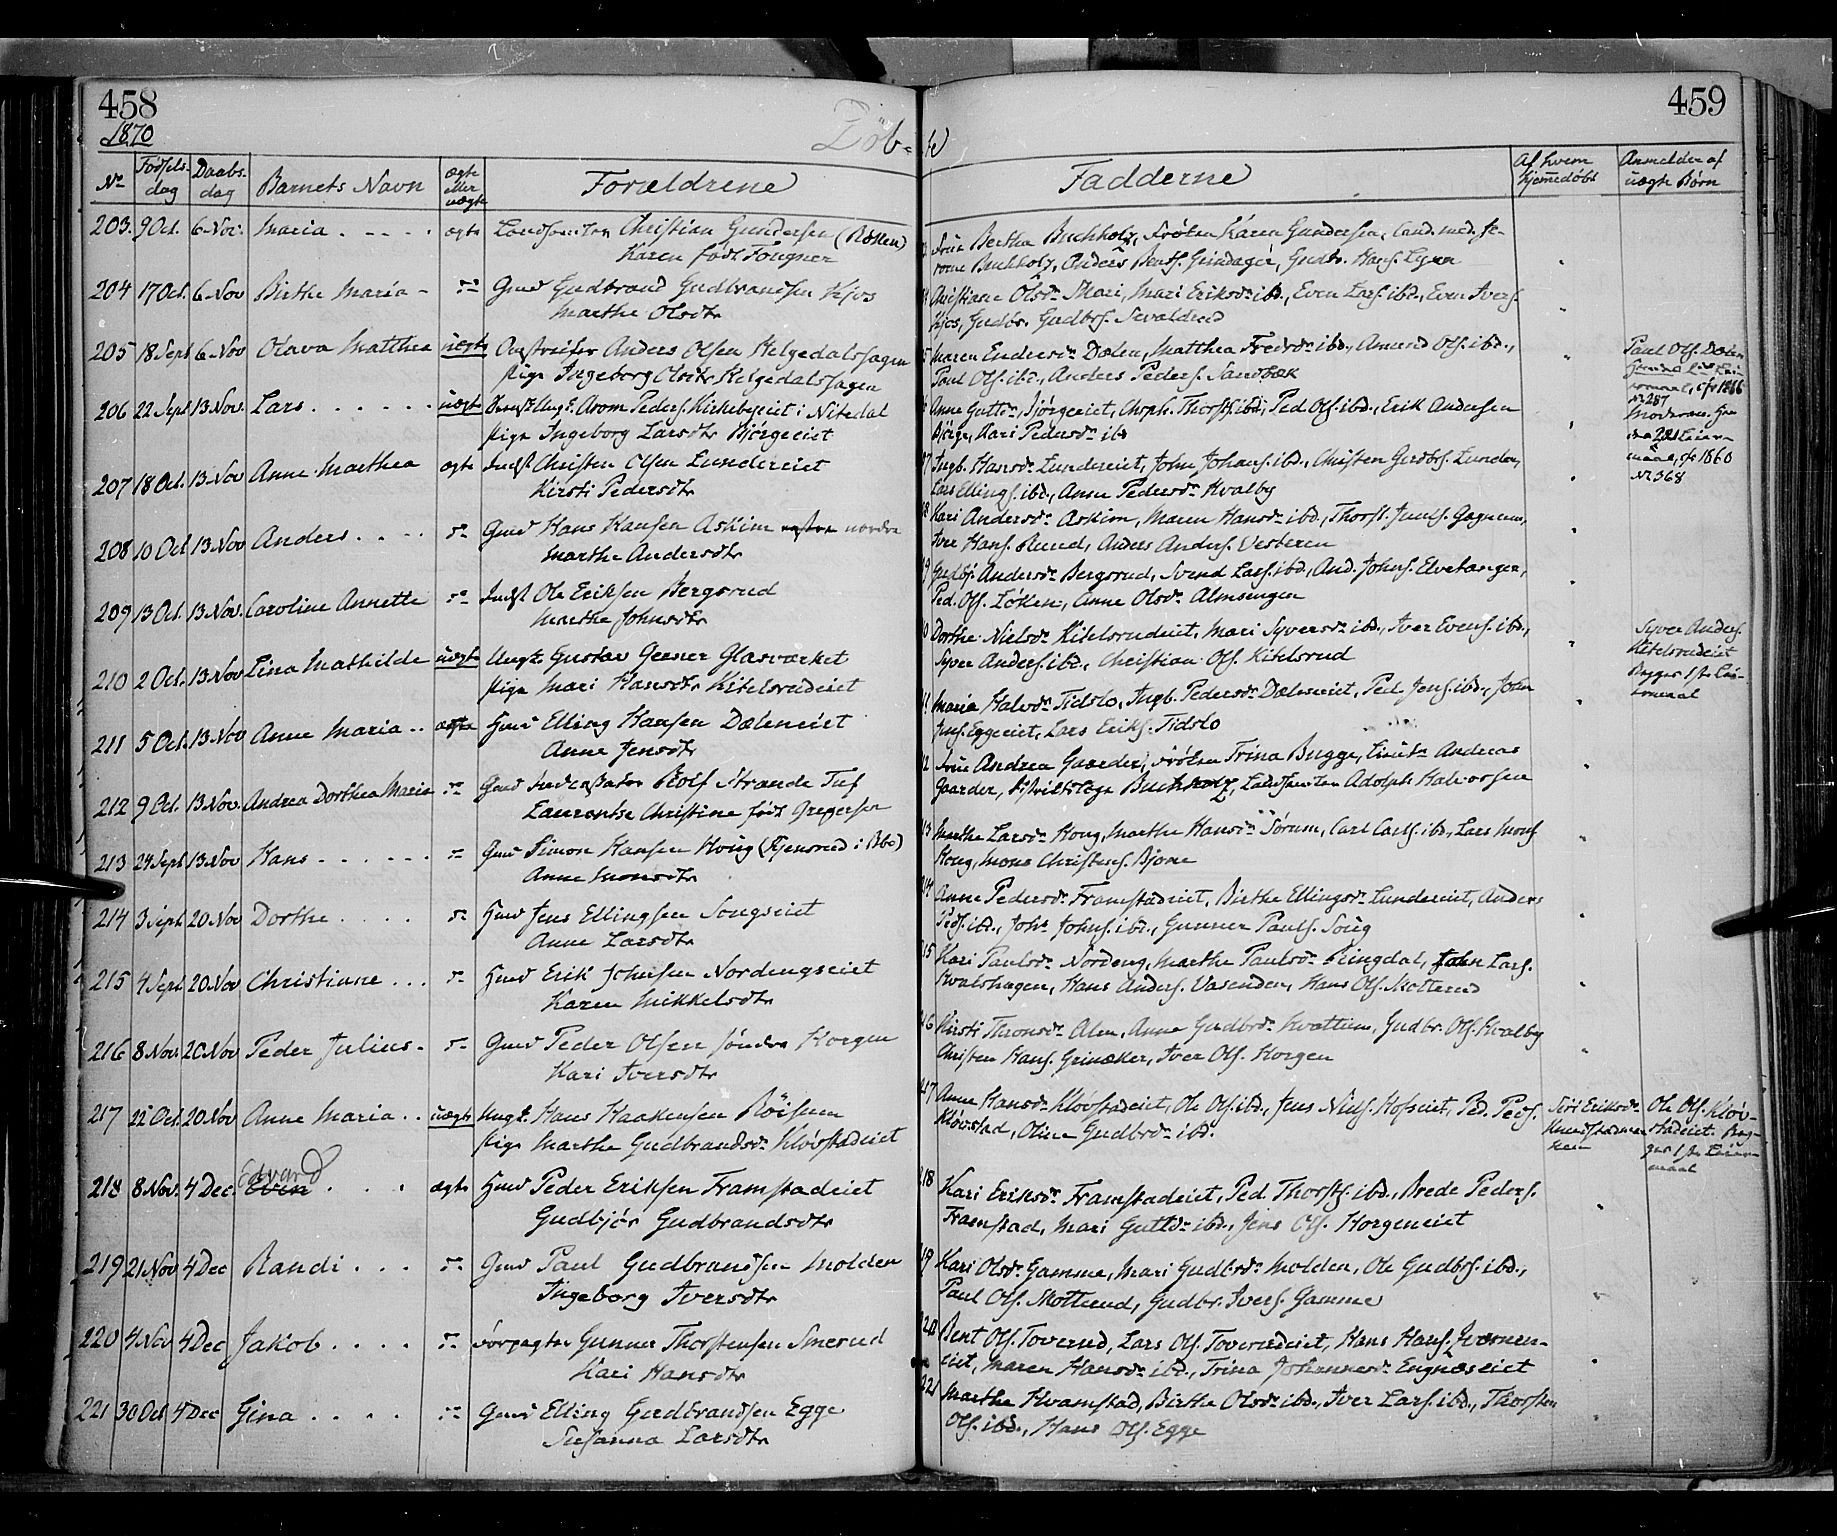 458
459
1870
Döb-
te
No
Fødsels-
dag
Daabs-
dag
Barnets Navn
ægte
eller
uægte
Forældrene
Fadderne
Af hvem
hjemmedøbt
Anmelder af
uægte Børn
203. 9 Oct. 6 Nov. Maria . . . . . ægte Landhandler Christian Gundersen
Karen født Fougner
Frue Bertha Buchholz, Frøken Karen Gundersen, Cand. med.
Buchholz, Anders Bents. Grindager, Gudbr. Hans.
204 17 Oct. 6 Nov Birthe Maria - Gmd Gudbrand Gudbrandsen Kjos
Marthe Olsdtr
Christiane Olsdr Skari, Mari Eriksdr ibd., Even Lars. ibd., Even Ivers.
Kjos, Gudbr. Gudbrs. Sevaldrud
205 18 Sept 6 Nov Olava Matthea uægte Anders Olsen Helgedalshagen
Pige Ingeborg Olsdtr Helgedalshagen
Maren Endresdr Dælen, Matthea Fredrdr ibd., Amund Ols. ibd.,
Paul Ols. ibd., Anders Peders. Sandbæk
Paul Ols. Dælen
206 22 Sept 13 Nov. Lars . . . . . . uægte Ungk. Arom Peders. Kirkebyeiet i Nitedal
Pige Ingeborg Larsdtr Bjørgeeiet
Anne Guttdr Bjørgeeiet, Chrph. Thorsts. ibd., Ped. Ols. ibd., Erik Andersen
Bjørge, Kari Pedersdr ibd
cfr 1866
No 287
Moderens
maal, cfr 1860
No 368
207 18 Oct. 13 Nov Anne Marthea ægte Indst Christen Olsen Lundereiet
Kirsti Pedersdtr
Ingb. Hansdr Lundereiet, John Johans. ibd., Christen Gudbrs. Lunder,
Lars Ellings. ibd., Anne Pedersdr Kvalby
208 10 Oct 13 Nov Anders . . . . Gmd Hans Hansen Askim nordre
Marthe Andersdtr
Kari Andersdr Askim, Maren Hansdr ibd., Thorst. Juuls. Gagnum,
Iver Hans. Rund, Anders Anders. Vesteren
209 13 Oct. 13 Nov. Caroline Annette Indst Ole Eriksen Bergsrud
Marthe Johnsdtr
Gudbj. Andersdr Bergsrud, Svend Lars. ibd., And. Johns. Elvetangen,
Ped. Ols. Løken, Anne Olsdr Almsengen
210 2 Oct. 13 Nov Lina Mathilde uægte Ungk. Gustav Geener Glasværket
Pige Mari Hansdtr Kitelsrudeiet
Dorthe Nielsdr Kitelsrudeiet, Mari Syversdr ibd., Iver Evens. ibd.,
Syver Anders. ibd., Christian Ols. Kitelsrud
Syver Anders.
Kitelsrudeiet
Begges 1ste Lei-
ermaal
211 5 Oct. 13 Nov Anne Maria . . ægte Hmd Elling Hansen Dæleneiet
Anne Jensdtr
Maria Halvdr Tidslo, Ingb. Pedersdr Dæleneiet, Ped. Jens. ibd., John
Jens. Eggeeiet, Lars Eriks. Tidslo
212 9 Oct. 13 Nov. Andrea Dorthea Maria Gmd Rolf Strande Tuf
Laurentse Christine født Gregersen
Frue Andrea Gaarder, Frøken Trina Bugge, Lieutn Andreas
Gaarder, Distriktslæge Buchholz, Landhandler Adolph Halvorsen
213 24 Sept 13 Nov Hans . . . . . . Gmd Simon Hansen Houg
Anne Monsdtr
Marthe Larsdr Houg, Marthe Hansdr Sørum, Carl Carls. ibd., Lars Mons.
Houg, Mons Christens. Bjone
214 3 Sept 20 Nov Dorthe . . . . Hmd Jens Ellingsen Sougseiet
Anne Larsdtr
Anne Pedersdr Framstadeiet, Birthe Ellingsdr Lundereiet, Anders
Peds. ibd., Johs Johns. ibd., Gunner Pauls. Soug
215 4 Sept 20 Nov Christiane . . . Hmd Erik Johnsen Nordengseiet
Karen Mikkelsdtr
Kari Paulsdr Nordeng, Marthe Paulsdr Ringdal, John Lars.
Kvalshagen, Hans Anders. Vasenden, Hans Ols. Molterud
216 8 Nov. 20 Nov Peder Julius - Gmd Peder Olsen søndre Horgen
Kari Iversdtr
Kirsti Thronsdr Alm, Anne Gudbrdr Kvattum, Gudbr. Ols. Kvalby
Christen Hans. Grinaker, Iver Ols. Horgen
217 22 Oct. 20 Nov Anne Maria . . uægte Ungk. Hans Haakensen Røisum
Pige Marthe Gudbrandsdr Kløvstadeiet
Anne Hansdr Kløvstadeiet, Ole Ols. ibd., Jens Niels. Hofseiet, Ped. Peds.
Kløvstad, Oline Gudbrdr ibd.
Siri Eriksdr
Ole Ols. Kløv-
stadeiet. Beg-
ges 1ste Leier-
maal
218 8 Nov. 4 Dec. Edvard . . . ægte Hmd Peder Eriksen Framstadeiet
Gudbjør Gudbrandsdtr
Kari Eriksdr Framstadeiet, Ped. Thorsts. ibd., Brede Peders.
Framstad, Mari Guttdr ibd., Jens Ols. Horgeneiet
219 21 Nov 4 Dec Randi . . . Gmd Paul Gudbrandsen Molden
Ingeborg Iversdtr
Kari Olsdr Gamme, Mari Gudbrdr Molden, Ole Gudbrs. ibd.,
Paul Ols. Molterud, Gudbr. Ivers. Gamme
220 4 Nov 4 Dec Jakob . . . . Forpagter Gunner Thorstensen Smerud
Kari Hansdtr
Bent Ols. Toverud, Lars Ols. Toverudeiet, Hans Hans.
eiet, Maren Hansdr ibd., Trina Johannesdr Engnæseiet
221 30 Oct 4 Dec Gina . . . . Gmd Elling Gudbrandsen Egge
Susanna Larsdtr
Marthe Kvamstad, Birthe Olsdr ibd., Iver Lars. ibd., Thorsten
Ols. ibd., Hans Ols. Egge